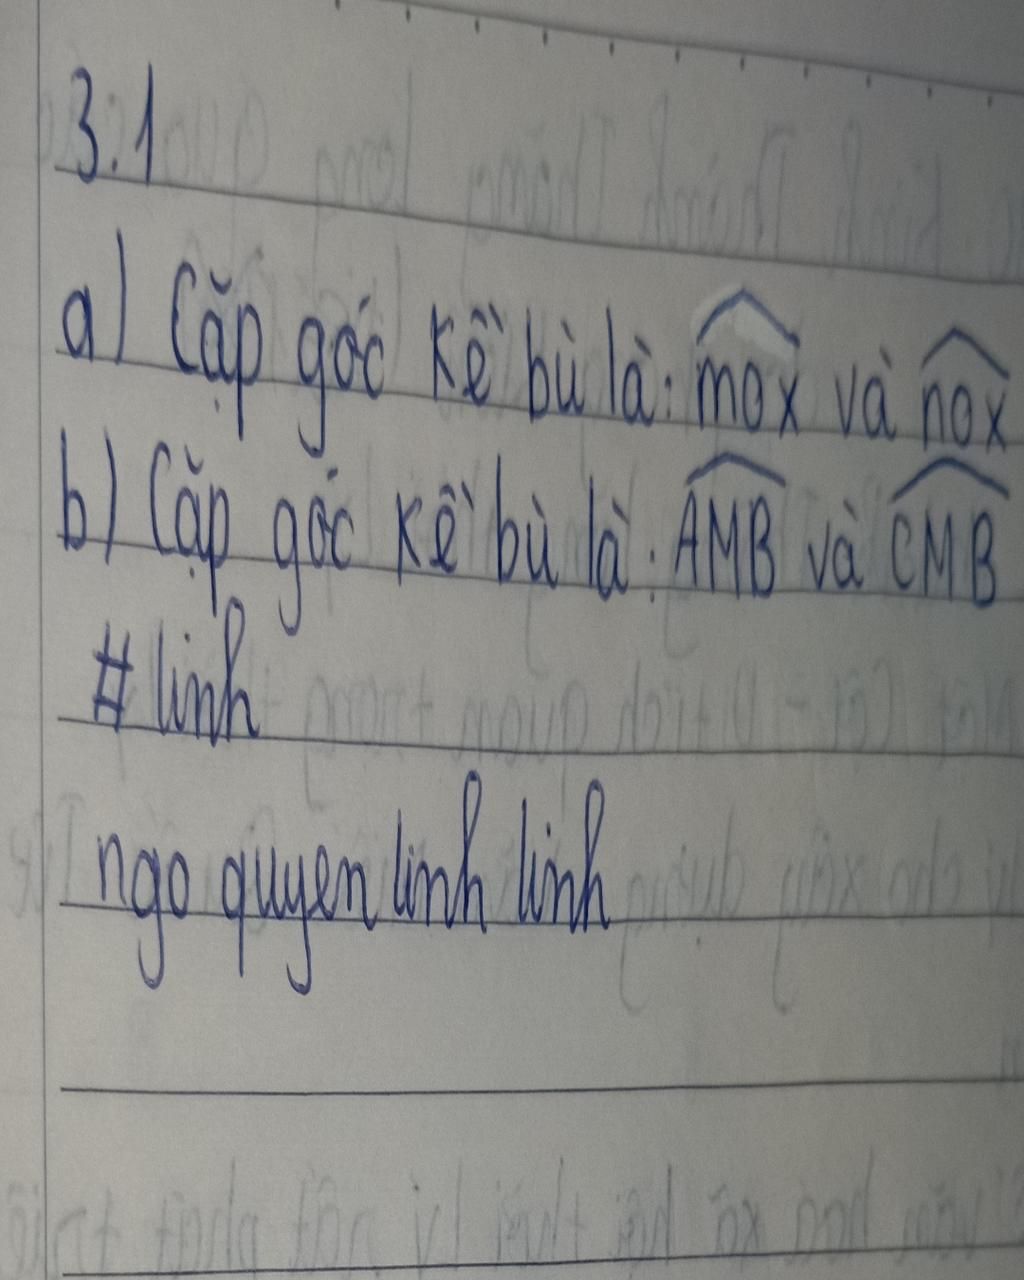 3.1
a) Cặp góc kề bù là: mox và nox
b) Cặp góc kề bù là: AMB và CMB
# linh
ngo quyen linh linh